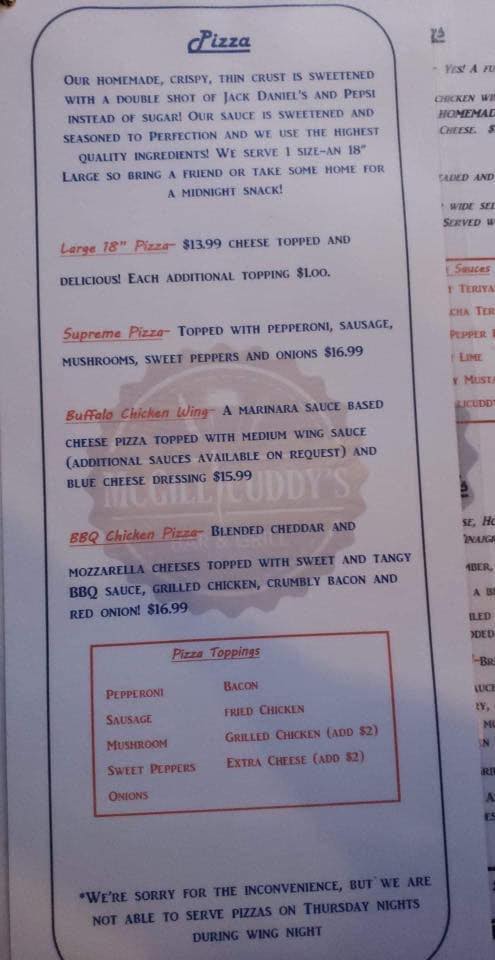 Pizza
OUR HOMEMADE, CRISPY, THIN CRUST IS SWEETENED
WITH A DOUBLE SHOT OF JACK DANIEL'S AND PEPSI
INSTEAD OF SUGAR! OUR SAUCE IS SWEETENED AND
SEASONED TO PERFECTION AND WE USE THE HIGHEST
QUALITY INGREDIENTS! WE SERVE 1 SIZE-AN 18"
LARGE SO BRING A FRIEND OR TAKE SOME HOME FOR
A MIDNIGHT SNACK!
Large 18" Pizza- $13.99 CHEESE TOPPED AND
DELICIOUS! EACH ADDITIONAL TOPPING $1.00.
Supreme Pizza- TOPPED WITH PEPPERONI, SAUSAGE,
MUSHROOMS, SWEET PEPPERS AND ONIONS $16.99
Buffalo Chicken Wing- A MARINARA SAUCE BASED
CHEESE PIZZA TOPPED WITH MEDIUM WING SAUCE
(ADDITIONAL SAUCES AVAILABLE ON REQUEST) AND
BLUE CHEESE DRESSING $15.99
MCGILLICUDDY'S
BBQ Chicken Pizza- BLENDED CHEDDAR AND
MOZZARELLA CHEESES TOPPED WITH SWEET AND TANGY
BBQ SAUCE, GRILLED CHICKEN, CRUMBLY BACON AND
RED ONION! $16.99
Pizza Toppings
PEPPERONI
SAUSAGE
MUSHROOM
SWEET PEPPERS
ONIONS
BACON
FRIED CHICKEN
GRILLED CHICKEN (ADD $2)
EXTRA CHEESE (ADD $2)
*WE'RE SORRY FOR THE INCONVENIENCE, BUT WE ARE
NOT ABLE TO SERVE PIZZAS ON THURSDAY NIGHTS
DURING WING NIGHT
YES! A
CHICKEN
HOMEMAD
CHEESE. $
AND
WIDE
SERVED
Sauces
TERIYA
PEPPER
LIME